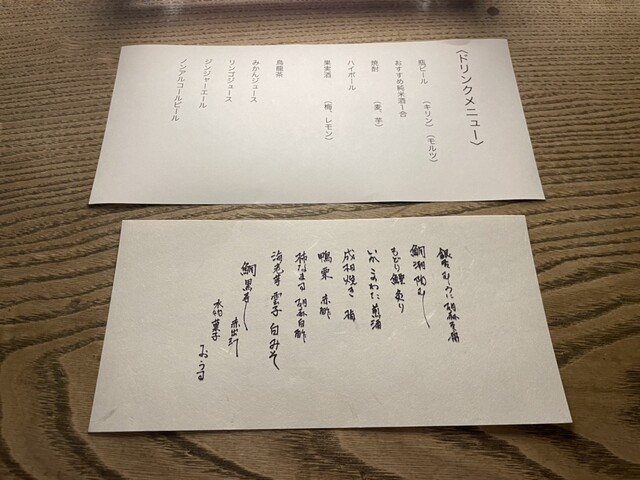 〈ドリンクメニュー〉
瓶ビール （キリン）（モルツ）
おすすめ純米酒1合
焼酎 （麦、芋）
ハイボール
果実酒 （梅、レモン）
烏龍茶
みかんジュース
リンゴジュース
ジンジャーエール
ノンアルコールビール
銀杏むしうに胡麻豆腐
鯛潮
もどり鰹炙り
いか このわた
焼き
鴨栗 赤酢
柿なます 胡麻白酢
海老芋 雲子 白みそ
鯛
赤出汁
水物 菓子